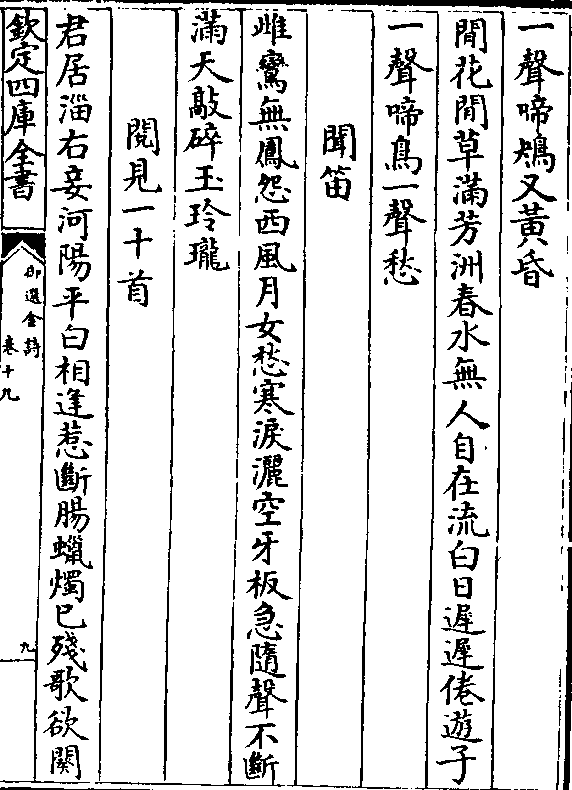 一聲啼鴂又黃昏
閒花閒草滿芳洲春水無人自在流白日遲遲倦遊子
一聲啼鳥一聲愁
聞笛
雌鸞無鳳怨西風月女愁寒淚灑空牙板急隨聲不斷
滿天敲碎玉玲瓏
閱見一十首
君居淄右妾河陽平白相逢惹斷腸蠟燭已殘歌欲闋
欽定四庫全書
御選金詩
卷十九
九